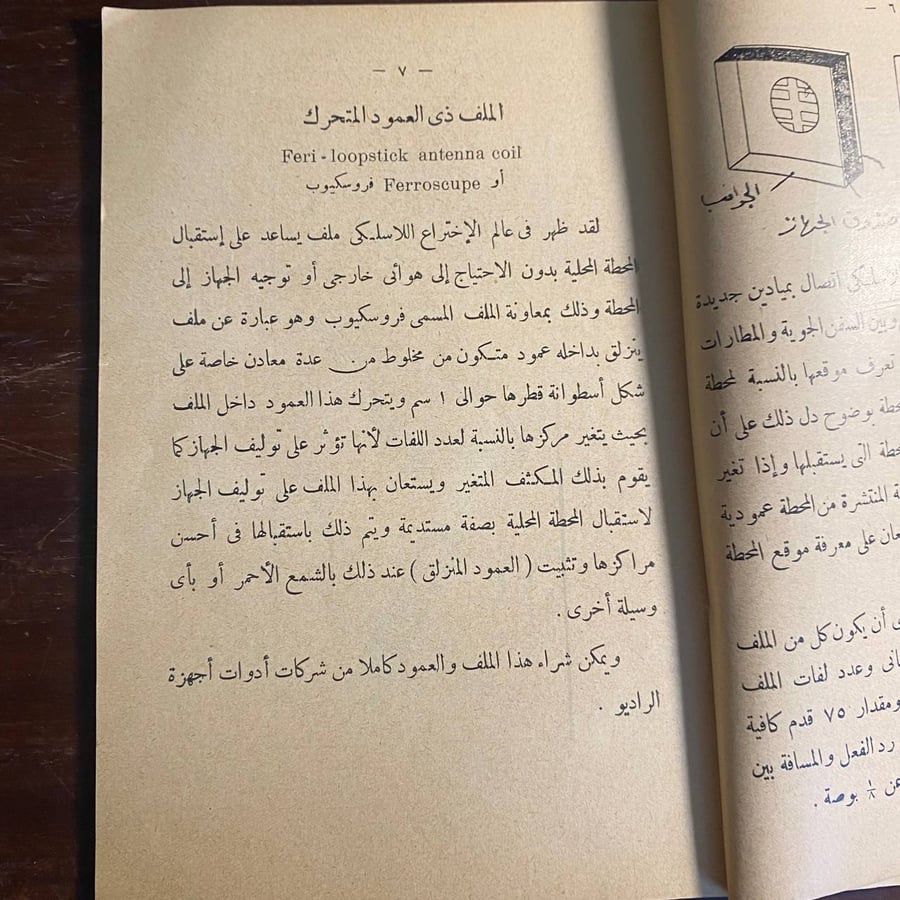 — ٧ —
الملف ذى العمود المتحرك
Feri - loopstick antenna coil
أو Ferroscupe فروسكيوب
لقد ظهر فى عالم الإختراع اللاسلكى ملف يساعد على إستقبال
المحطة المحلية بدون الاحتياج إلى هوائى خارجى أو توجيه الجهاز إلى
المحطة وذلك بمعاونة الملف المسمى فروسكيوب وهو عبارة عن ملف
ينزلق بداخله عمود متكون من مخلوط من عدة معادن خاصة على
شكل أسطوانة قطرها حوالى ١ سم ويتحرك هذا العمود داخل الملف
بحيث يتغير مركزها بالنسبة لعدد اللفات لأنها تؤثر على توليف الجهاز كما
يقوم بذلك المكثف المتغير ويستعان بهذا الملف على توليف الجهاز
لاستقبال المحطة المحلية بصفة مستديمة ويتم ذلك باستقبالها فى أحسن
مراكزها وتثبيت ( العمود المنزلق ) عند ذلك بالشمع الأحمر أو بأى
وسيلة أخرى .
ويمكن شراء هذا الملف والعمود كاملا من شركات أدوات أجهزة
الراديو .
— ٦
الجوانب
صندوق الجهاز
اتصال بميادين جديدة
وبين السفن الجوية والمطارات
تعرف موقعها بالنسبة لمحطة
بوضوح دل ذلك على أن
التى يستقبلها وإذا تغير
المنتشرة من المحطة عمودية
على معرفة موقع المحطة
أن يكون كل من الملف
وعدد لفات الملف
ومقدار ٧٥ قدم كافية
رد الفعل والمسافة بين
عن ١/٨ بوصة .